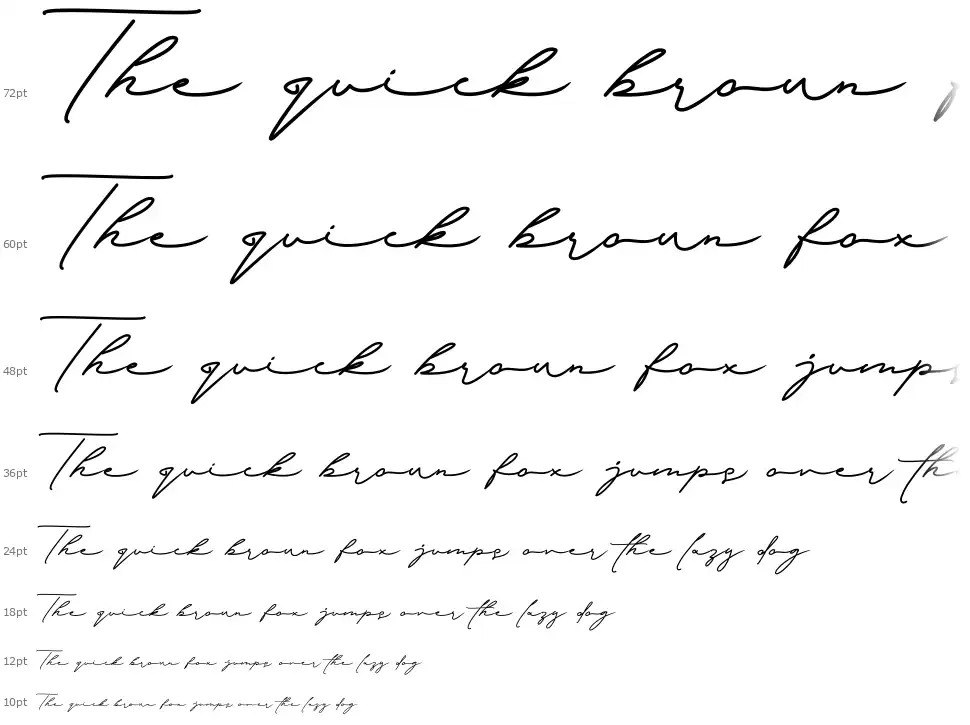 72pt The quick brown
60pt The quick brown fox
48pt The quick brown fox jumps
36pt The quick brown fox jumps over the
24pt The quick brown fox jumps over the lazy dog
18pt The quick brown fox jumps over the lazy dog
12pt The quick brown fox jumps over the lazy dog
10pt The quick brown fox jumps over the lazy dog